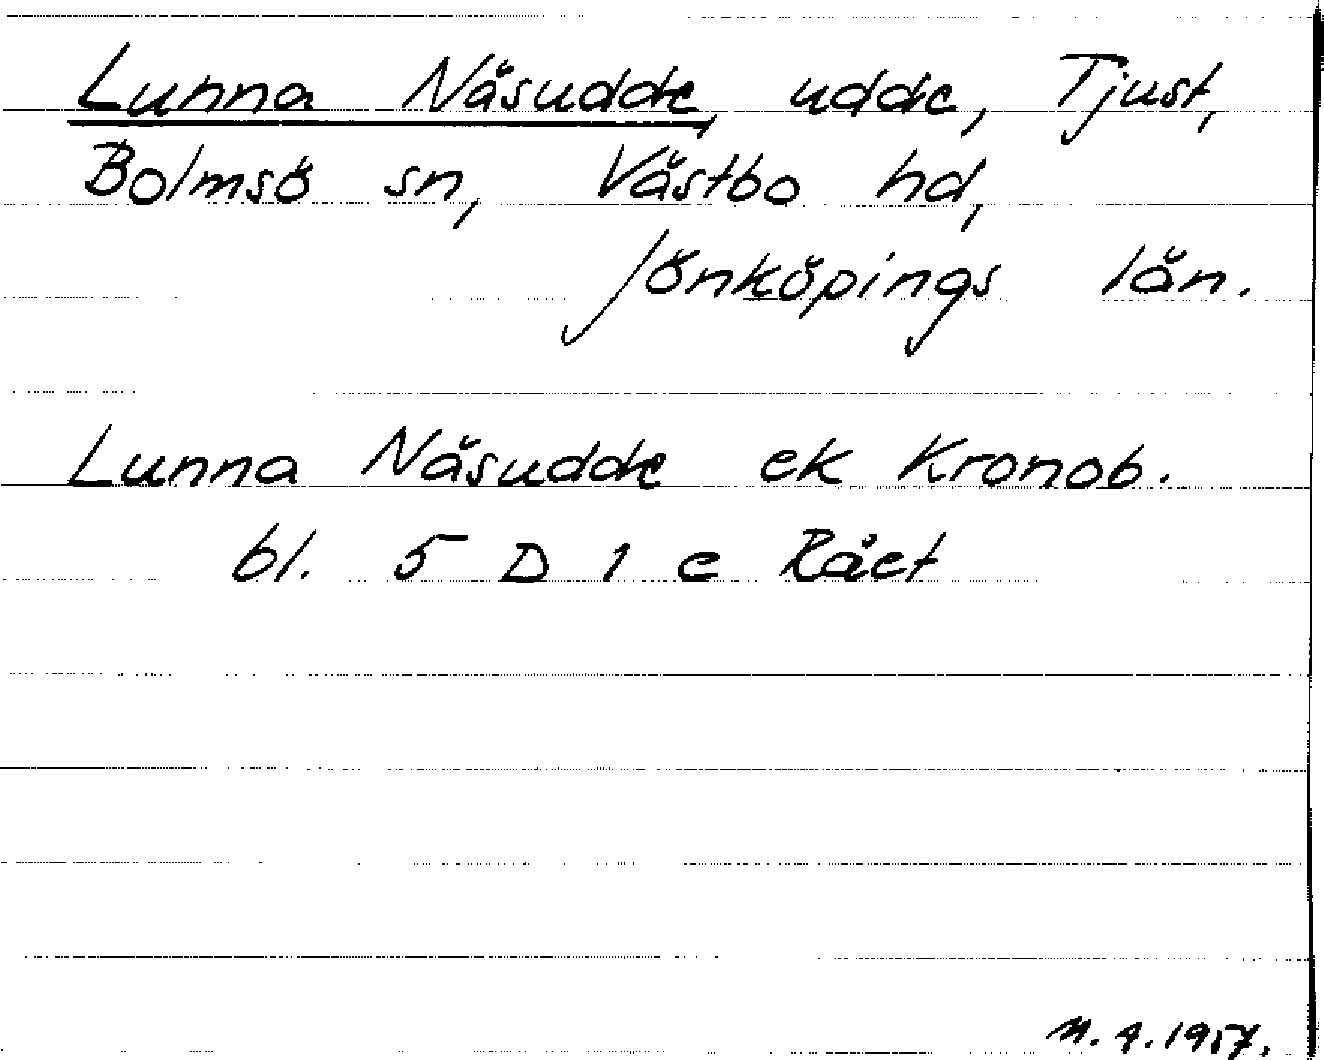 Lunna Näsudde, udde, Tjust,
Bolmsö sn, Västbo hd,
Jönköpings län.
Lunna Näsudde ek Kronob.
bl. 5 D 1 e Råct
M. A. 1957.